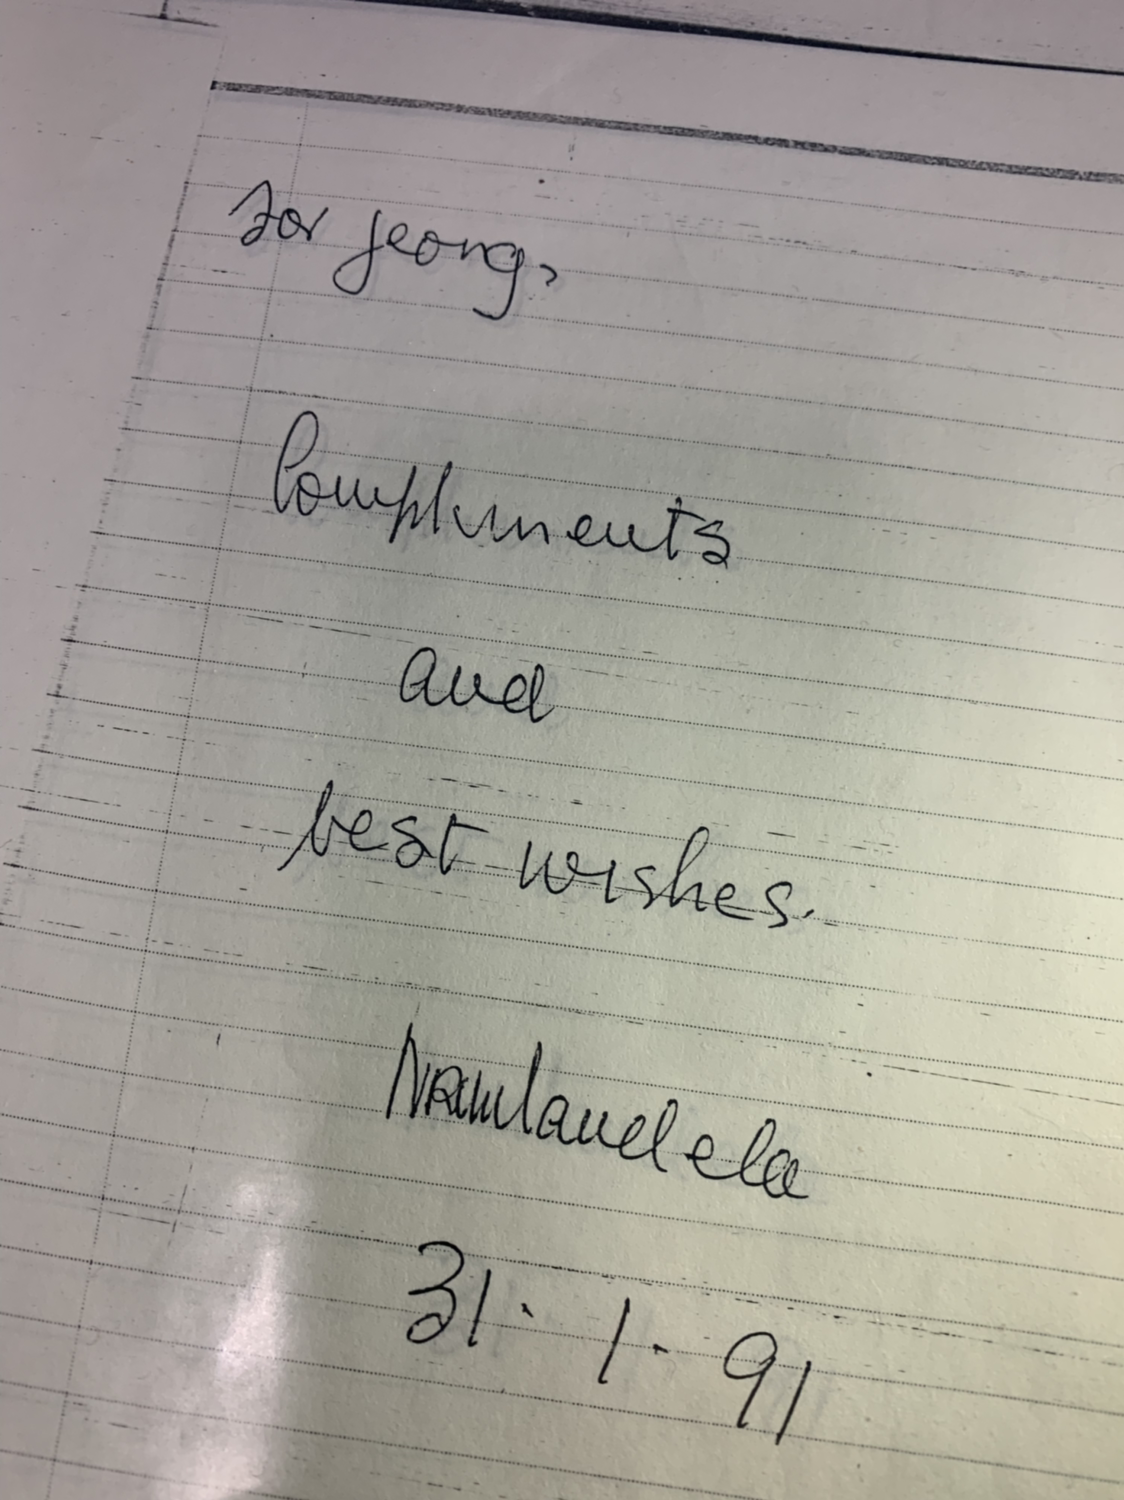 For Jeong,
Compliments
and
best wishes.
NRMandela
31. 1. 91